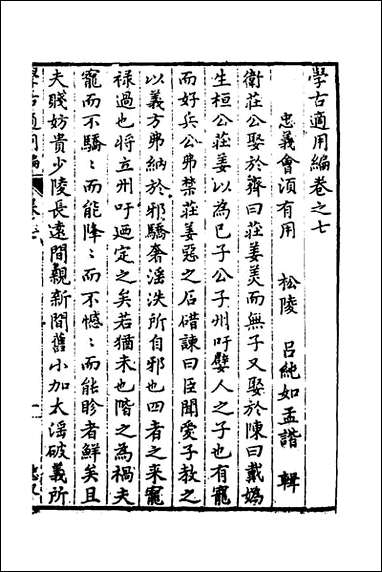 學古適用編卷之七
忠義會須有用　松陵　呂純如孟諧　輯
衛莊公娶於齊曰莊姜美而無子又娶於陳曰戴媯
生桓公莊姜以為己子公子州吁嬖人之子也有寵
而好兵公弗禁莊姜惡之石碏諫曰臣聞愛子教之
以義方弗納於邪驕奢淫泆所自邪也四者之來寵
祿過也將立州吁迺定之矣若猶未也階之為禍夫
寵而不驕〻而能降〻而不憾〻而能眕者鮮矣且
夫賤妨貴少陵長遠間親新間舊小加大淫破義所
學古適用編